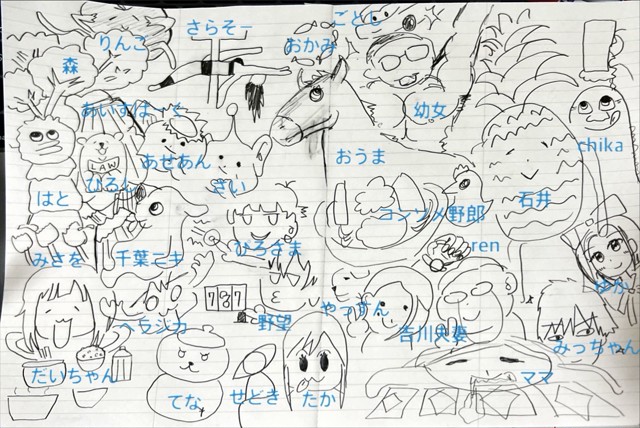 ごとし
さらそー
りんこ
おかみ
森
幼女
あいすばーぐ
chika
あせあん
おうま
LAW
ひろん
ざい
はと
石井
コンソメ野郎
ren
みさを
千葉ニキ
ひろさま
ゆか
787
やっすん
ヘラジカ
野望
吉川夫妻
みっちゃん
だいちゃん
ママ
てな
せどき
たか